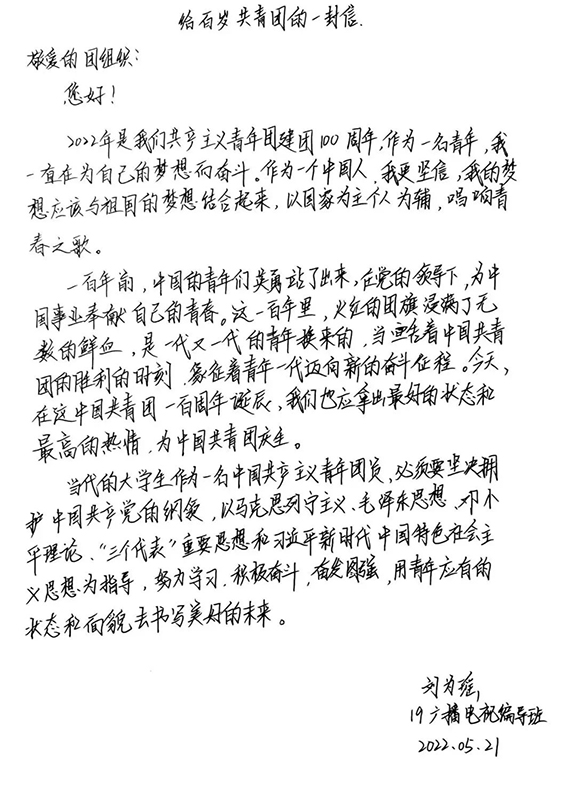 给百岁共青团的一封信.
敬爱的团组织：
您好！
2022年是我们共产主义青年团建团100周年，作为一名青年，我
一直在为自己的梦想而奋斗。作为一个中国人，我更坚信，我的梦
想应该与祖国的梦想结合起来，以国家为主个人为辅，唱响青
春之歌。
一百年前，中国的青年们英勇站了出来，在党的领导下，为中
国事业奉献自己的青春。这一百年里，火红的团旗浸满了无
数的鲜血，是一代又一代的青年换来的，当画着中国共青
团的胜利的时刻，象征着青年一代迈向新的奋斗征程。今天，
在这中国共青团一百周年诞辰，我们也应拿出最好的状态和
最高的热情，为中国共青团庆生。
当代的大学生作为一名中国共产主义青年团员，必须要坚决拥
护中国共产党的纲领，以马克思列宁主义、毛泽东思想、邓小
平理论、“三个代表”重要思想和习近平新时代中国特色社会主
义思想为指导，努力学习，积极奋斗，奋发图强，用青年应有的
状态和面貌去书写美好的未来。
刘为瑶
19广播电视编导班
2022.05.21